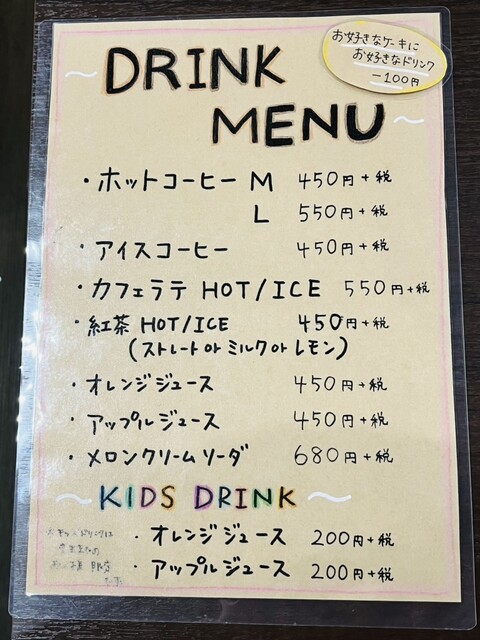 お好きなケーキに
お好きなドリンク
-100円
~DRINK
MENU~
・ホットコーヒー M 450円+税
L 550円+税
・アイスコーヒー 450円+税
・カフェラテ HOT/ICE 550円+税
・紅茶 HOT/ICE 450円+税
(ストレートorミルクorレモン)
・オレンジジュース 450円+税
・アップルジュース 450円+税
・メロンクリームソーダ 680円+税
~KIDS DRINK~
・オレンジジュース 200円+税
・アップルジュース 200円+税